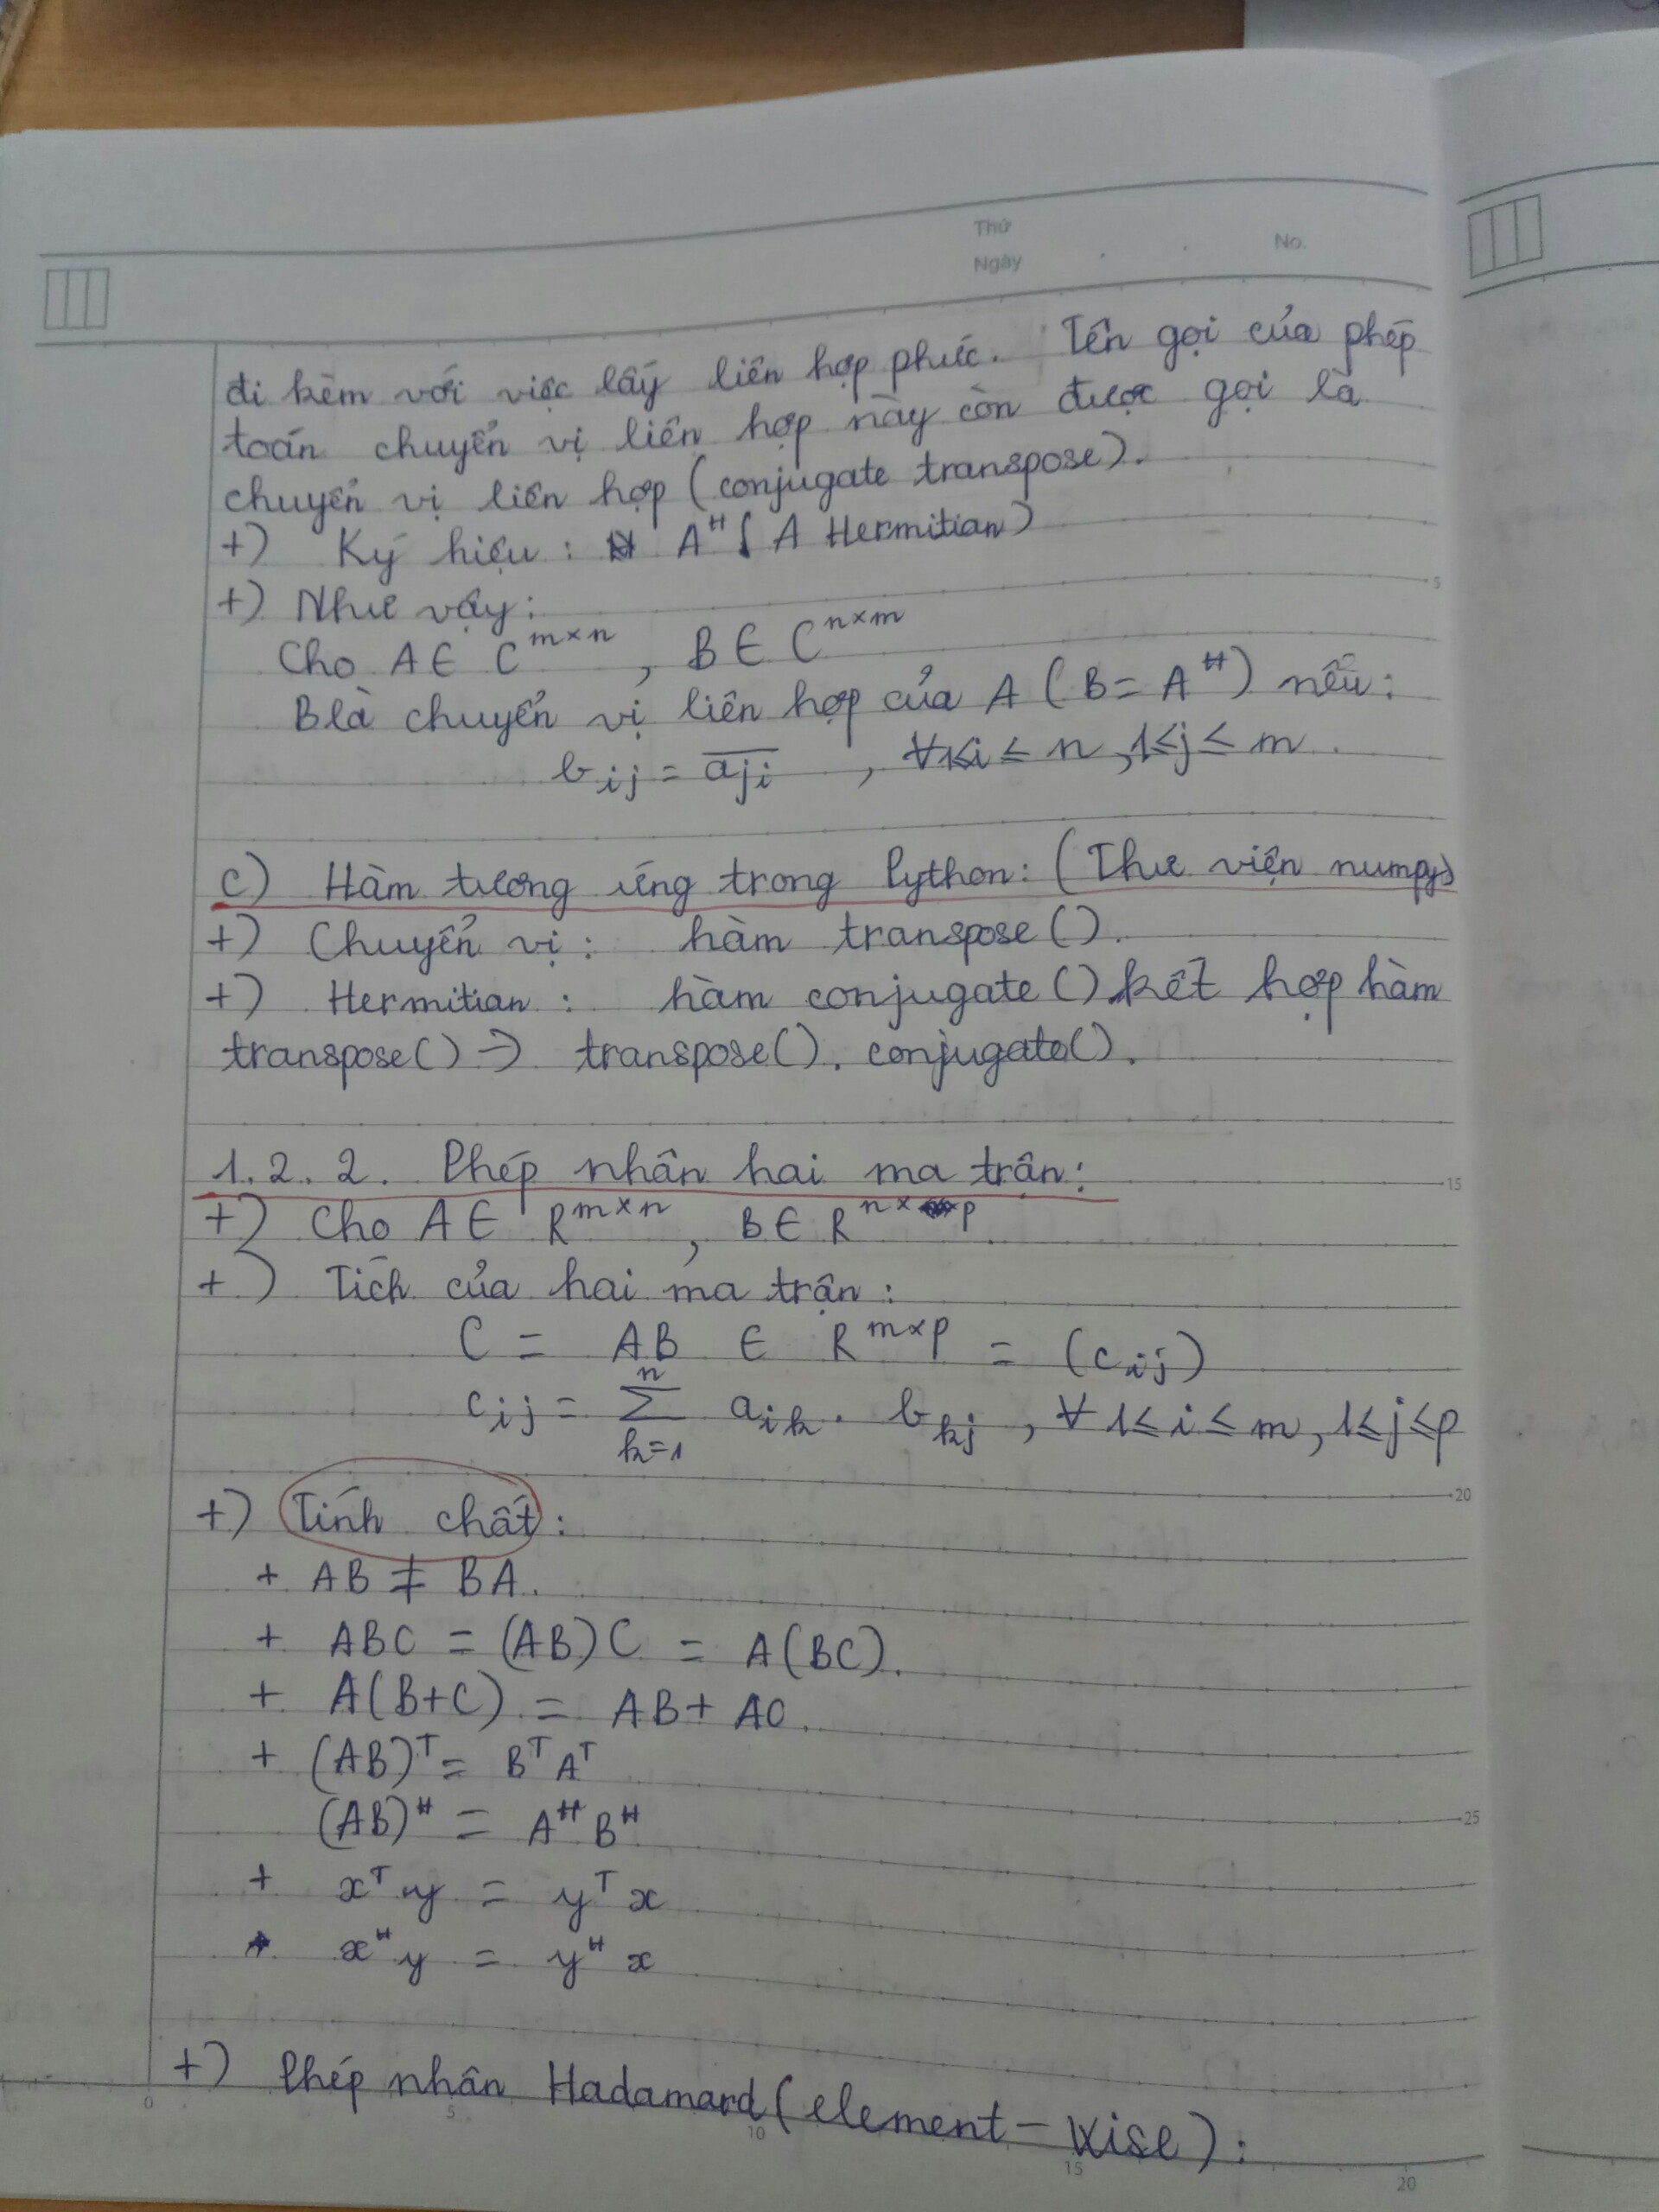 Thứ
Ngày
No.
đi kèm với việc lấy liên hợp phức. Tên gọi của phép
toán chuyển vị liên hợp này còn được gọi là
chuyển vị liên hợp (conjugate transpose).
+) Ký hiệu: Aᴴ (A Hermitian)
+) Như vậy:
Cho A ∈ C^{m×n}, B ∈ C^{n×m}
B là chuyển vị liên hợp của A (B = Aᴴ) nếu:
b_{ij} = \overline{a_{ji}}, ∀ 1≤i≤n, 1≤j≤m.
c) Hàm tương ứng trong Python: (Thư viện numpy)
+) Chuyển vị: hàm transpose().
+) Hermitian: hàm conjugate() kết hợp hàm
transpose() → transpose(). conjugate().
1.2.2. Phép nhân hai ma trận:
+) Cho A ∈ R^{m×n}, B ∈ R^{n×p}
+) Tích của hai ma trận:
C = AB ∈ R^{m×p} = (c_{ij})
c_{ij} = ∑_{k=1}^{n} a_{ik} . b_{kj}, ∀ 1≤i≤m, 1≤j≤p
+) Tính chất:
+ AB ≠ BA.
+ ABC = (AB)C = A(BC).
+ A(B+C) = AB + AC.
+ (AB)ᵀ = BᵀAᵀ
(AB)ᴴ = AᴴBᴴ
+ xᵀy = yᵀx
xᴴy = yᴴx
+) Phép nhân Hadamard (element-wise):
5
15
20
25
0
5
10
15
20